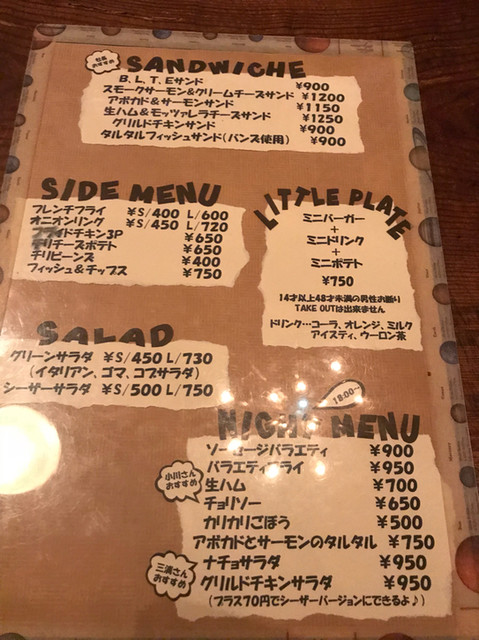 おすすめ
SANDWICHE
B、L、T、Eサンド ¥900
スモークサーモン&クリームチーズサンド ¥1200
アボカド&サーモンサンド ¥1150
生ハム&モッツァレラチーズサンド ¥1250
グリルドチキンサンド ¥900
タルタルフィッシュサンド(バンズ使用) ¥900
SIDE MENU
フレンチフライ ¥S/400 L/600
オニオンリング ¥S/450 L/720
フライドチキン3P ¥650
チリチーズポテト ¥650
チリビーンズ ¥400
フィッシュ&チップス ¥750
LITTLE PLATE
ミニバーガー
+
ミニドリンク
+
ミニポテト
¥750
14才以上48才未満の男性お断り
TAKE OUTは出来ません
ドリンク…コーラ、オレンジ、ミルク
アイスティ、ウーロン茶
SALAD
グリーンサラダ ¥S/450 L/730
(イタリアン、ゴマ、コブサラダ)
シーザーサラダ ¥S/500 L/750
18:00〜
NIGHT MENU
ソーセージバラエティ ¥900
バラエティフライ ¥950
小川さん
おすすめ
生ハム ¥700
チョリソー ¥650
カリカリごぼう ¥500
アボカドとサーモンのタルタル ¥750
三浜さん
おすすめ
ナチョサラダ ¥950
グリルドチキンサラダ ¥950
(プラス70円でシーザーバージョンにできるよ♪)